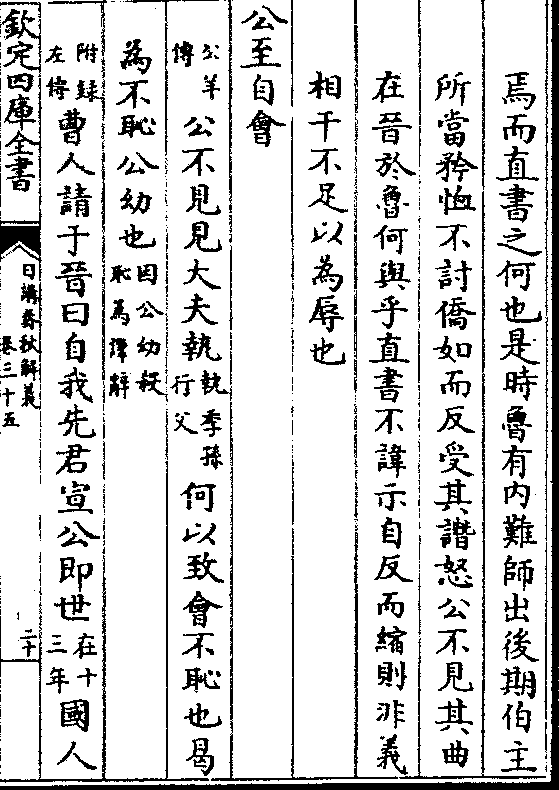 焉而直書之何也是時魯有内難師出後期伯主
所當矜恤不討僑如而反受其譖怒公不見其曲
在晉於魯何與乎直書不諱示自反而縮則非義
相干不足以為辱也
公至自會
公羊傳公不見見大夫執執季孫行父何以致會不恥也曷
為不恥公幼也因公幼殺恥為諱辭
附録左傳曹人請于晉曰自我先君宣公即世在十三年國人
欽定四庫全書
日講春秋解義
卷三十五
二十